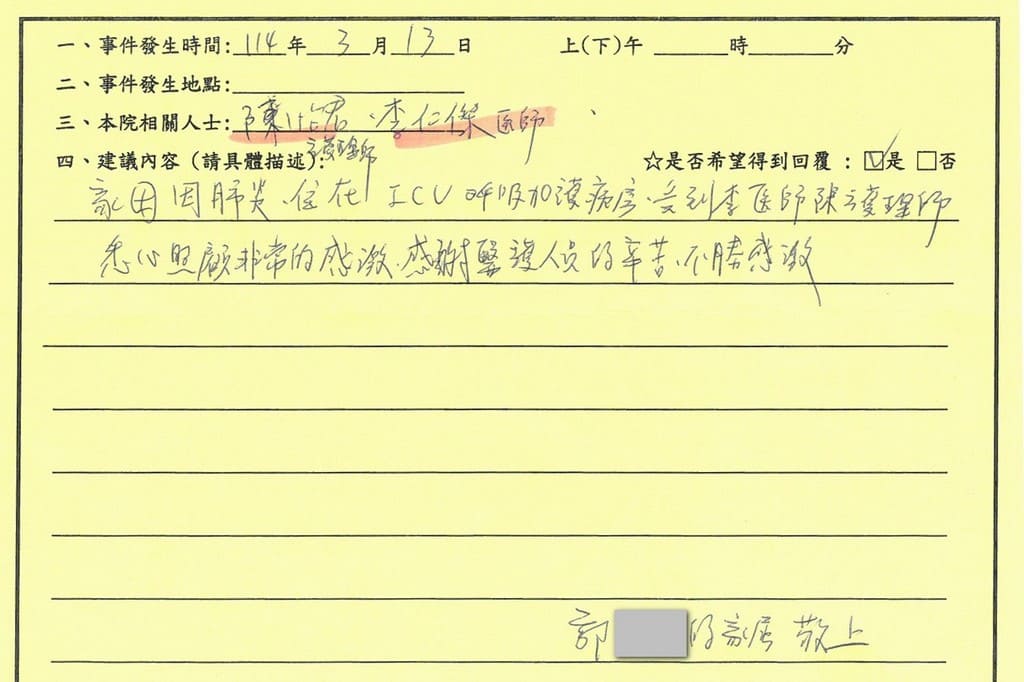 一、事件發生時間: 114 年 3 月 13 日 上(下)午 時 分
二、事件發生地點:
三、本院相關人士: 陳怡君、李仁傑医師、
護理師
四、建議內容(請具體描述): ☆是否希望得到回覆:☑是 □否
家因因肺炎、住在 ICU 呼吸加護病房、受到李医師陳護理師
悉心照顧非常的感激、感謝醫護人員的辛苦、不勝感激
郭 的家屬 敬上